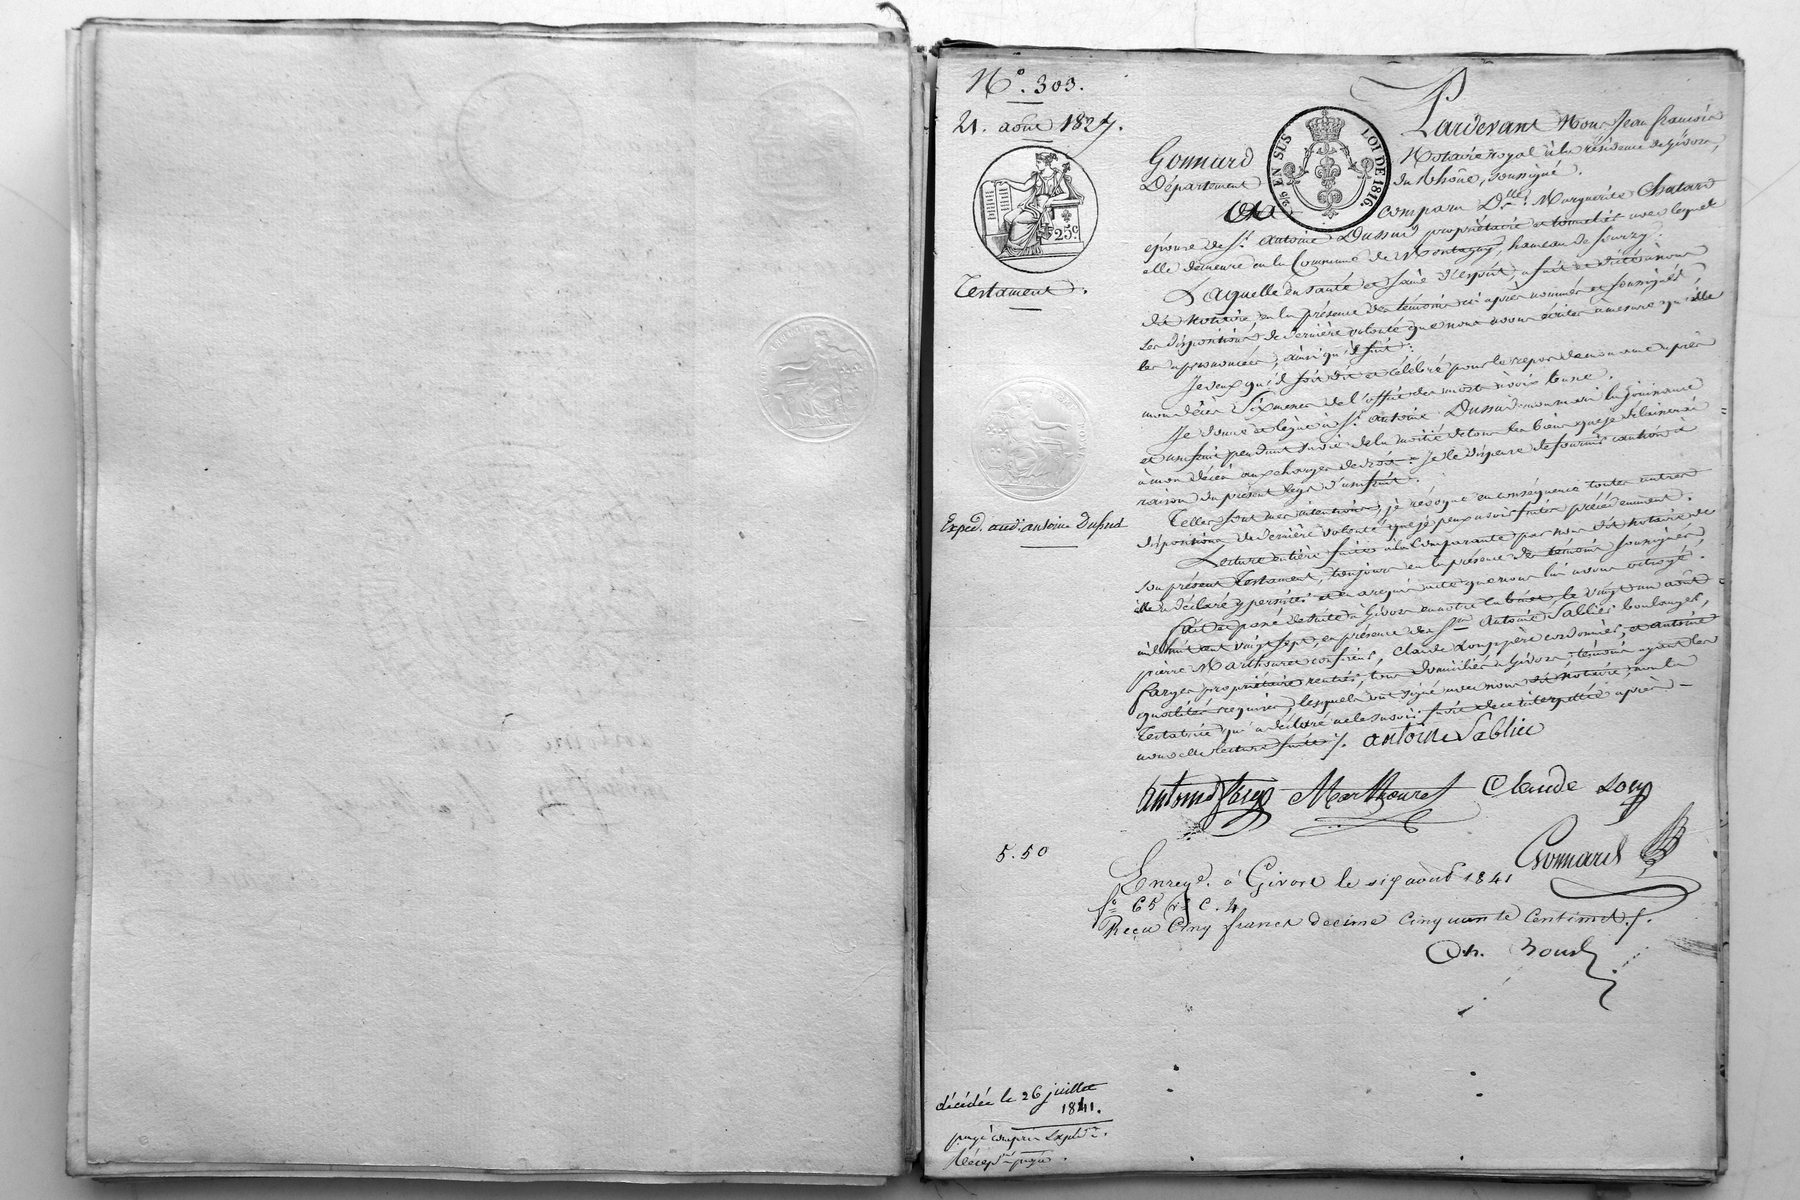 N.° 303.
21. août 1827.
25.c
Testament.
Exped. aud. antoine Dussud
5.50
décédée le 26 juillet
1841.
payé compris Expéd.on
Récep.sé payé.
Pardevant Nous Jean françois
Gonnard Notaire royal à la résidence de Givors,
Département du Rhône, soussigné.
25 EN SUS LOI DE 1816.
Est comparu D.lle Marguerite Chatard
épouse de S.r antoine Dussud propriétaire et tonnelier avec lequel
elle demeure en la Commune de Montagny, hameau de Sourzy.
Laquelle en santé et saine d'esprit, a fait et dicté à nous
dit notaire en la présence des témoins ci après nommés et soussignés
ses dispositions de dernière volonté que nous avons écrites à mesure qu'elle
les a prononcées, ainsi qu'il suit:
Je veux qu'il soit dit et célébré pour le repos de mon ame après
mon décès Six messes de l'office des morts à voix basse.
Je donne et lègue à S.r antoine Dussud mon mari la jouissance
et usufruit pendant sa vie de la moitié de tous les biens que je délaisserai
à mon décès aux charges de droit: Je le dispense de fournir caution à
raison du présent legs d'usufruit.
Telles sont mes intentions, je révoque en conséquence toutes autres
dispositions de dernière volonté que je peux avoir faites précédemment.
Lecture entière faite à la Comparante par nous dit notaire de
son présent Testament, toujours en la présence des témoins soussignés,
elle a déclaré y persister et en a requis acte que nous lui avons octroyé.
Fait et passé de suite à Givors en notre cabinet le vingt un août
mil huit cent vingt sept, en présence des S.rs Antoine Sablier boulanger,
pierre Marthouret confiseur, Claude Loup père cordonnier, et antoine
farges propriétaire rentier, tous domiciliés à Givors, témoins ayant les
qualités requises, lesquels ont signé avec nous dit notaire, non la
testatrice qui a déclaré ne le savoir faire de ce interpellée après
nouvelle lecture faite./. antoine Sablier
antoine farge Marthouret Claude Loup
Gonnard
Enreg.é à Givors le six août 1841
f.° 65 r.° C. 4
Reçu Cinq francs decime Cinquante Centimes./.